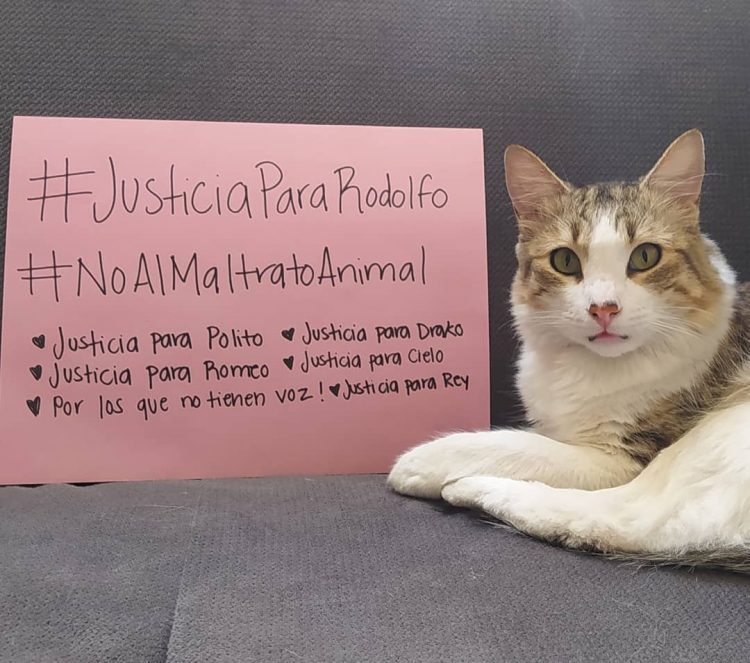 #JusticiaParaRodolfo
#NoAlMaltratoAnimal
♥ Justicia para Polito ♥ Justicia para Drako
♥ Justicia para Romeo ♥ Justicia para Cielo
♥ Por los que no tienen voz! ♥ Justicia para Rey